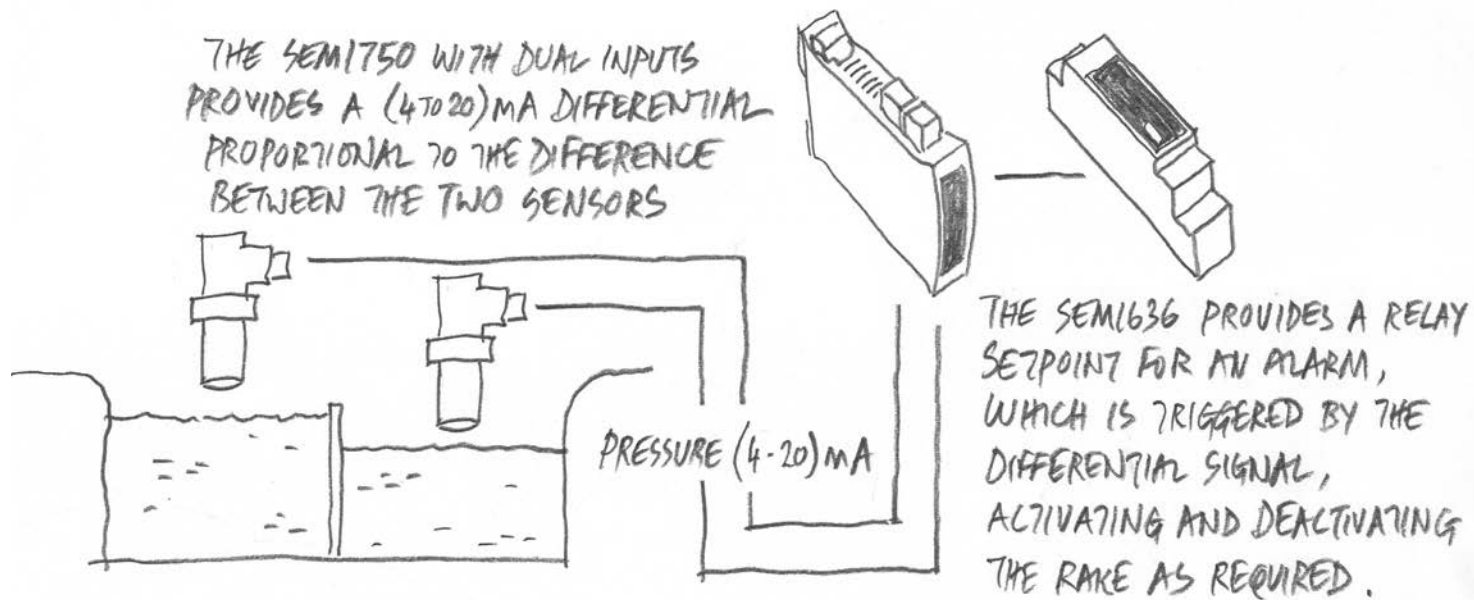 THE SEM1750 WITH DUAL INPUTS
PROVIDES A (4 TO 20) MA DIFFERENTIAL
PROPORTIONAL TO THE DIFFERENCE
BETWEEN THE TWO SENSORS
PRESSURE (4-20) MA
THE SEM1636 PROVIDES A RELAY
SETPOINT FOR AN ALARM,
WHICH IS TRIGGERED BY THE
DIFFERENTIAL SIGNAL,
ACTIVATING AND DEACTIVATING
THE RAKE AS REQUIRED.